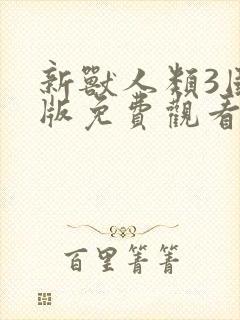 新獸人類3
版免費觀看
百里菁菁